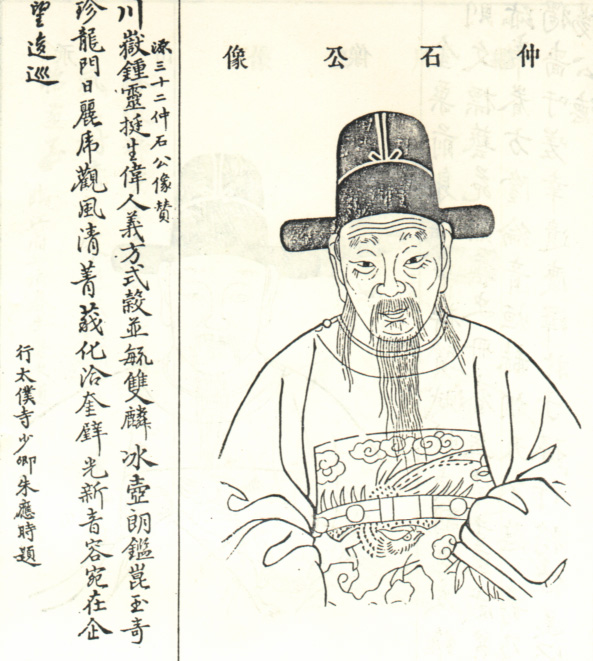 仲石公像
源三十二仲石公像贊
川嶽鍾靈挺生偉人義方式穀並毓雙麟冰壺朗鑑崑玉奇
珍龍門日麗乕觀風清菁莪化洽奎璧光新音容宛在企
望逡巡
行太僕寺少卿朱應時題